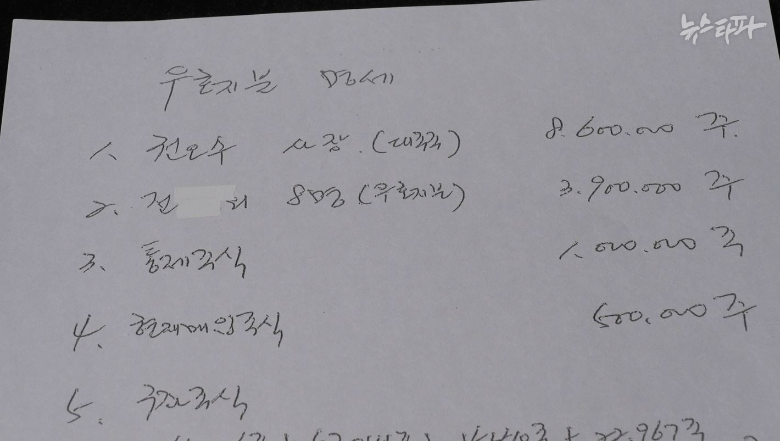 뉴스타파
우호지분 명세
1. 권오수 사장. (대주주) 8.600.000 주.
2. 전 희 8명 (우호지분) 3.900.000 주
3. 통제주식 1.000.000 주
4. 현재매입주식 500.000 주
5. 주식
22.967주